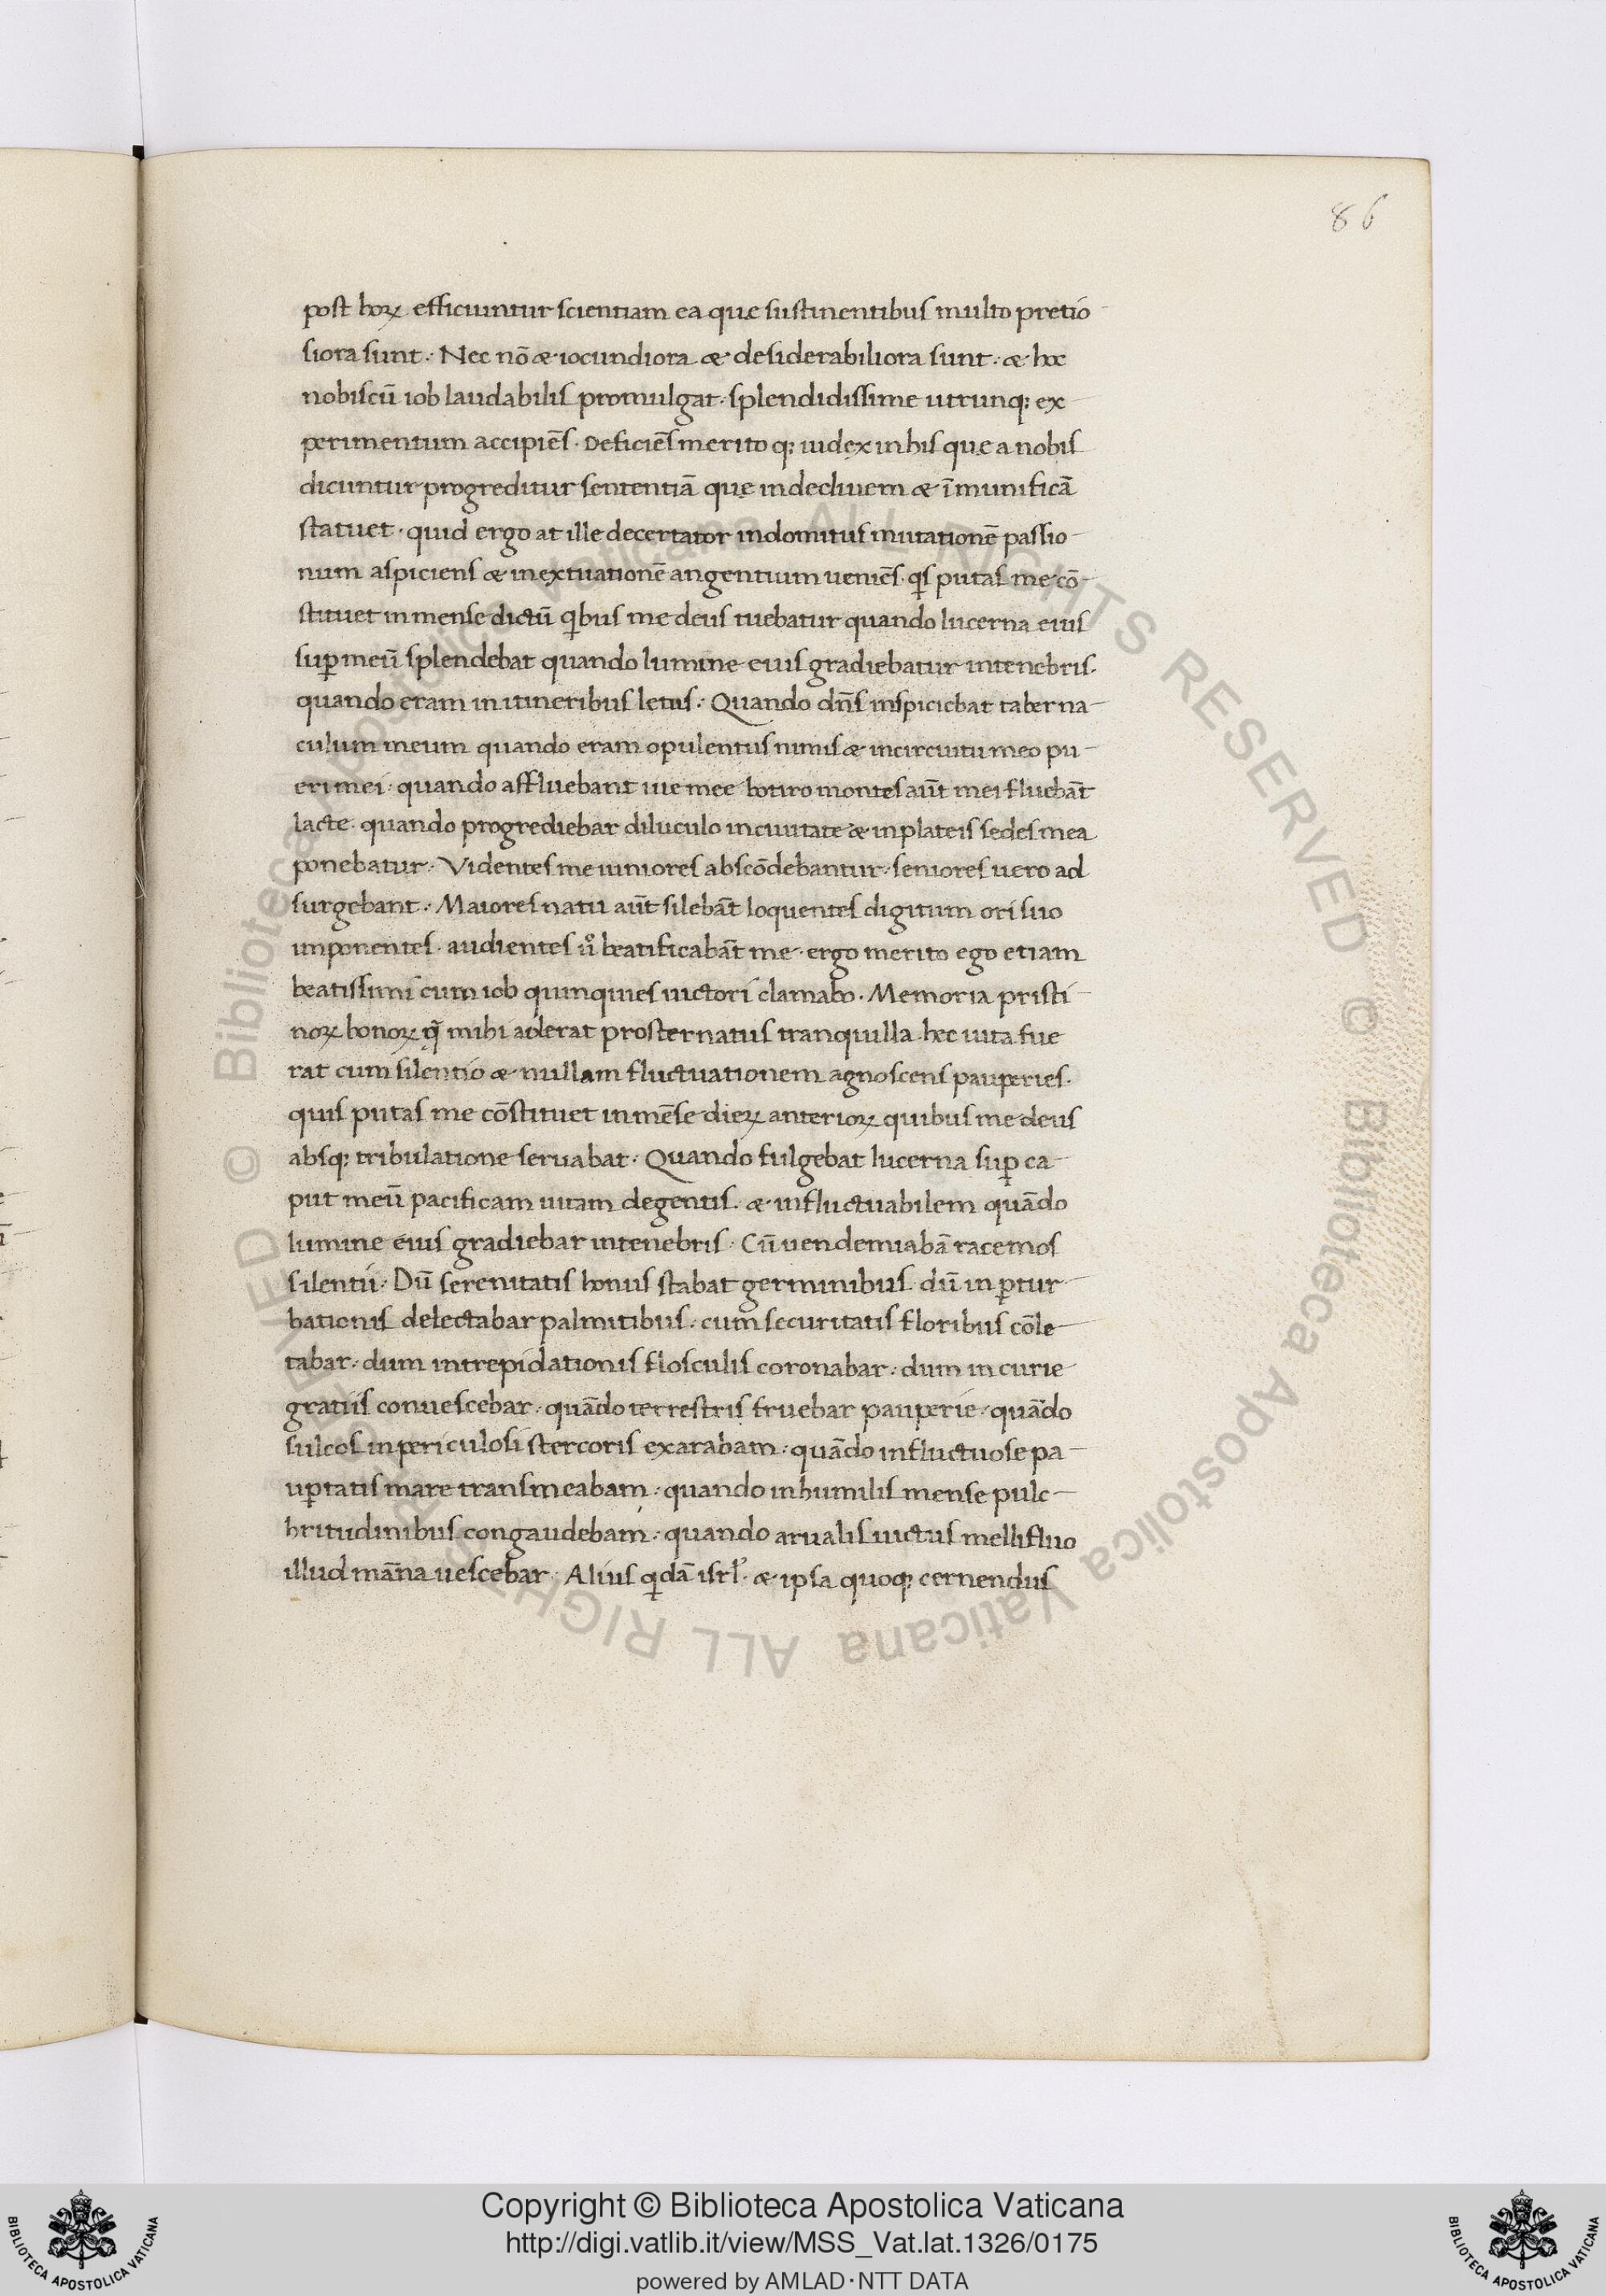 86
post horꝝ efficiuntur scientiam ea que sustinentibus multo pretio
siora sunt. Nec nō & iocundiora & desiderabiliora sunt. & hoc
nobiscū iob laudabilis promulgat. splendidissime utrunq; ex
perimentum accipiēs. Deficiēs merito q; iudex in his que a nobis
dicuntur progreditur sententiā que indecliuem & īmunificā
statuet. quid ergo at ille decertator indomitus mutationē passio
num aspiciens & inextuationē angentium ueniēs. qͥs putas me cō
stituet in mense dictū qͥbus me deus tuebatur quando lucerna eius
suꝑ meū splendebat quando lumine eius gradiebatur in tenebris.
quando eram in itineribus letus. Quando dn̄s inspiciebat taberna
culum meum quando eram opulentus nimis & in circuitu meo pu
eri mei. quando affluebant uie mee botiro montes aūt mei fluebāt
lacte. quando progrediebar diluculo in ciuitate & in plateis sedes mea
ponebatur. Videntes me iuniores abscōdebantur. seniores uero ad
surgebant. Maiores natu aūt silebāt loquentes digitum ori suo
imponentes. audientes uͦ beatificabāt me. ergo merito ego etiam
beatissimi cum iob quinquies uictori clamabo. Memoria pristi
norꝝ bonorꝝ q̄ mihi aderat prosternatus tranquilla. hec uita fue
rat cum silentio & nullam fluctuationem agnoscens pauperies.
quis putas me cōstituet in mēse dierꝝ anteriorꝝ quibus me deus
absq; tribulatione seruabat. Quando fulgebat lucerna suꝑ ca
put meū pacificam uitam degentis. & influctuabilem quādo
lumine eius gradiebar in tenebris. Cū uendemiabā racemos
silentii. Dū serenitatis honus stabat germinibus dū inꝑtur
bationis delectabar palmitibus. cum securitatis floribus cōle
tabar. dum intrepidationis flosculis coronabar. dum incurie
gratiis conuescebar. quādo terrestris fruebar pauperie. quādo
sulcos inpericulosi stercoris exarabam. quādo influctuose pa
uꝑtatis mare transmeabam. quando in humilis mense pulc
hritudinibus congaudebam. quando arualis uictus mellifluo
illud māna uescebar. Alius qͥdā isrl̓. & ipsa quoq; cernendus
© Biblioteca Apostolica Vaticana ALL RIGHTS RESERVED © Biblioteca Apostolica Vaticana ALL RIGHTS RESERVED
BIBLIOTECA APOSTOLICA VATICANA
Copyright © Biblioteca Apostolica Vaticana
http://digi.vatlib.it/view/MSS_Vat.lat.1326/0175
powered by AMLAD·NTT DATA
BIBLIOTECA APOSTOLICA VATICANA